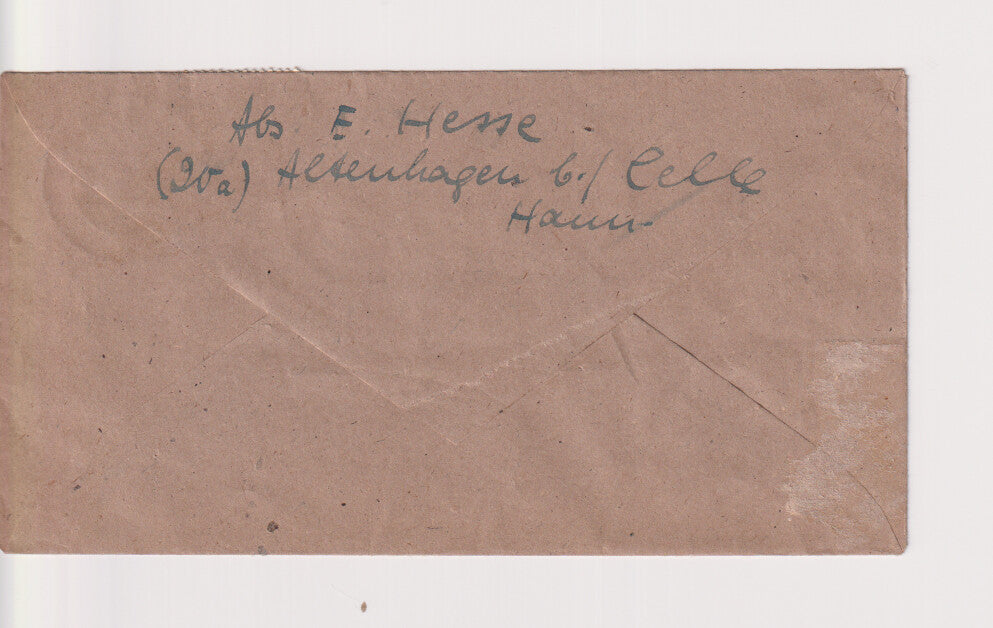 Abs. E. Hesse
(20a) Altenhagen b./ Celle
Hann.